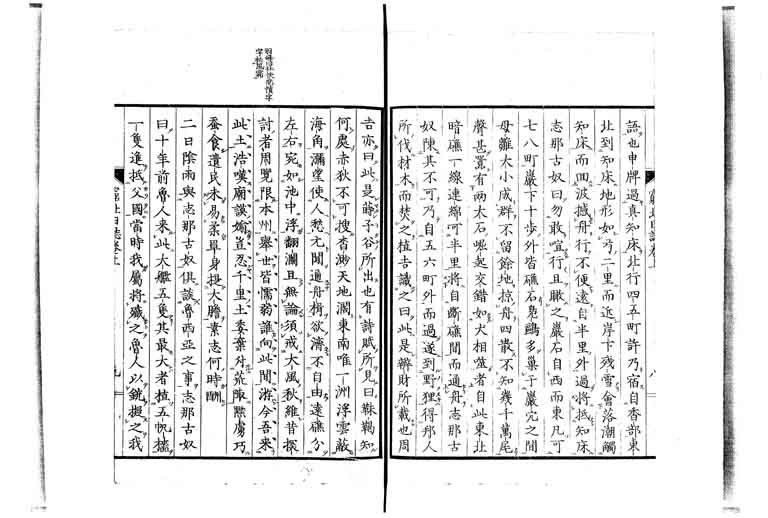 語也申牌過真知床北行四五町許乃宿自杳部東
北到知床地形如弓二里而近岸下残雪會落潮觸
知床而回波撼舟行不便遠自半里外過將抵知床
志那古奴曰勿敢喧行且瞰之巖石自西而東凡可
七八町巖下十歩外皆礁石鳬鷗多巢于巖穴之間
母雛大小成群不留餘地掠舟四散不知幾千萬尾
聲甚置有兩大石崛起交錯如犬相噬者自此東北
暗礁一線連綿可半里將自斷礁間而通舟志那古
奴陳其不可乃自五六町外而過遂到野狸得邦人
所伐材木而焚之植吉識之曰此是辨財所載也周
吉亦曰此是蒔子谷所出也有詩賦所見曰靺鞨知
何處赤狄不可搜杳渺天地濶東南唯一洲浮雲蔽
海角瀰望使人愁尤聞通舟楫欲濟不自由遠礁分
左右宛如池中浮翻瀾且無論須戒大風秋維昔探
討者周覽限本州舉世皆懦弱誰向此間游今吾來
此土浩嘆廟謨媮豈忍千里土委棄付荒陬黠虜巧
蚕食遺民未易柔單身提大膽素志何時酬
二日陰雨與志那古奴俱談魯西亞之事志那古奴
曰十年前魯人来此大艦五隻其最大者植五帆檣
一隻進抵父國當時我屬將殲之魯人以銃擬之我
窮北日誌卷上
九
八